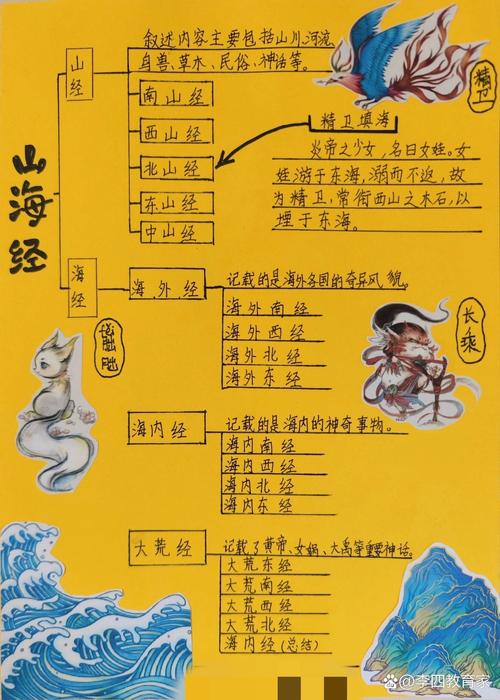 山海经
山经
叙述内容主要包括山川、河流、
鸟兽、草木、民俗、神话等。
南山经
西山经
北山经
东山经
中山经
精卫
精卫填海
炎帝之少女，名曰女娃。女
娃游于东海，溺而不返，故
为精卫，常衔西山之木石，以
堙于东海。
海经
海外经
记载的是海外各国的奇异风貌。
海外南经
海外西经
海外北经
海外东经
长乘
海内经
记载的是海内的神奇事物。
海内南经
海内西经
海内北经
海内东经
大荒经
记载了黄帝、女娲、大禹等重要神话。
大荒东经
大荒南经
大荒西经
大荒北经
海内经(总结)
@李四教育家